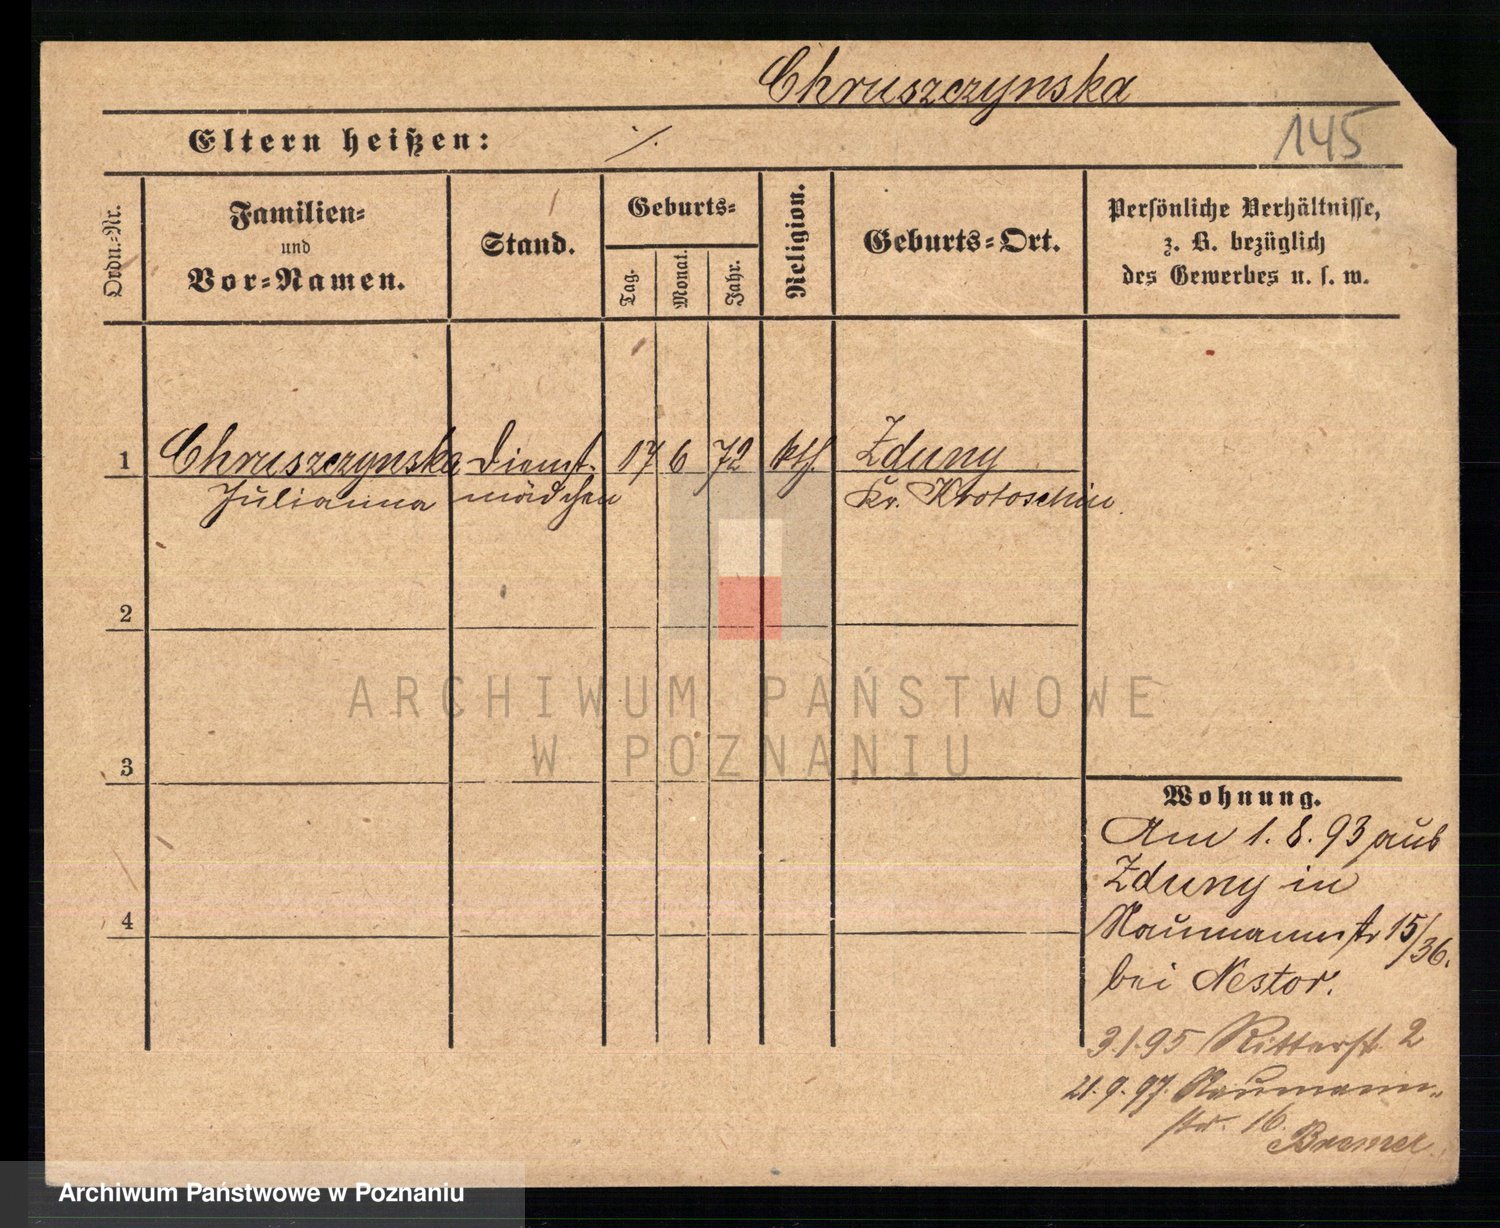 Chruszczynska
Eltern heißen: ./.
145
Ordn.-Nr.
Familien-
und
Vor-Namen.
Stand.
Geburts-
Tag.
Monat.
Jahr.
Religion.
Geburts-Ort.
Persönliche Verhältnisse,
z. B. bezüglich
des Gewerbes u. s. w.
1 Chruszczynska Dienst- 17 6 72 kth. Zduny
Julianna mädchen Kr. Krotoschin.
2
3
4
Wohnung.
Am 1. 8. 93 aus
Zduny in
Naumannstr 15/36.
bei Nestor.
3.1.95 Ritterst. 2
21.9.97. Naumann-
str. 16.
Bremer
ARCHIWUM PAŃSTWOWE
W POZNANIU
Archiwum Państwowe w Poznaniu